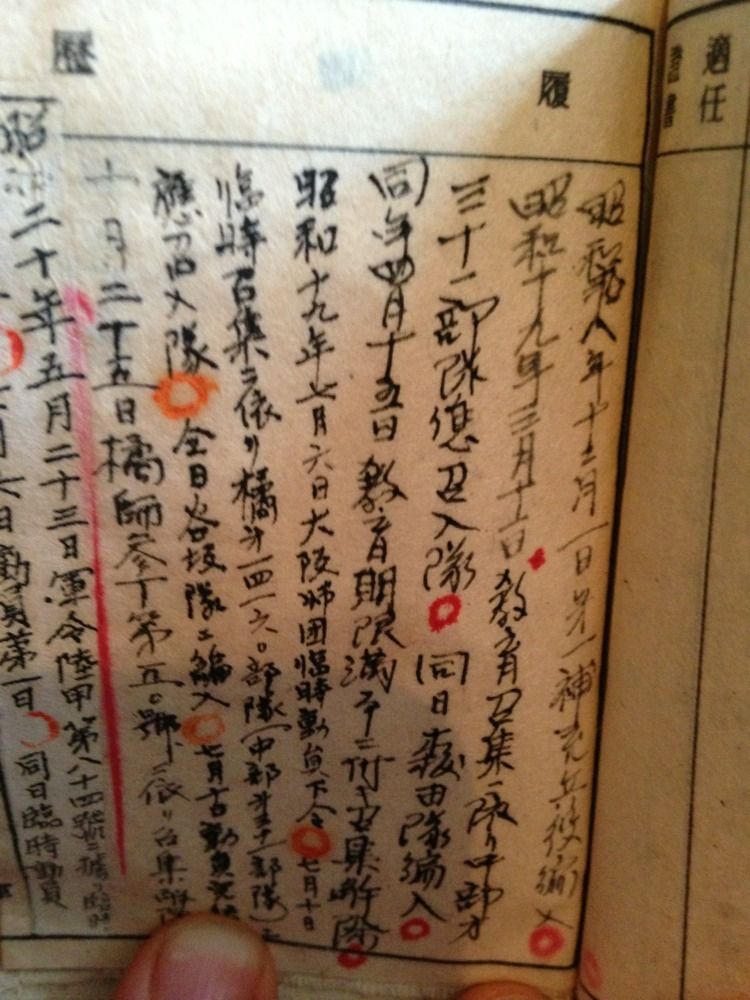 適任
證書
履歴
八年十二月一日第一補充兵役編入
昭和十九年三月十二日教育召集ニ依リ中部第
三十二部隊應召入隊 同日森田隊編入
同年四月十五日教育期限満了ニ付召集解除
昭和十九年七月六日大阪師団臨時動員下令 七月十日
臨時召集ニ依リ橘第一四一六〇部隊(中部第 部隊)ニ
應召入隊 仝日谷坂隊ニ編入 七月 動員完結
月二十五日橘師参丁第五〇號ニ依リ召集解
昭和二十年五月二十三日軍令陸甲第八十四號ニ據ル臨時
月六日動員第一日 同日臨時動員